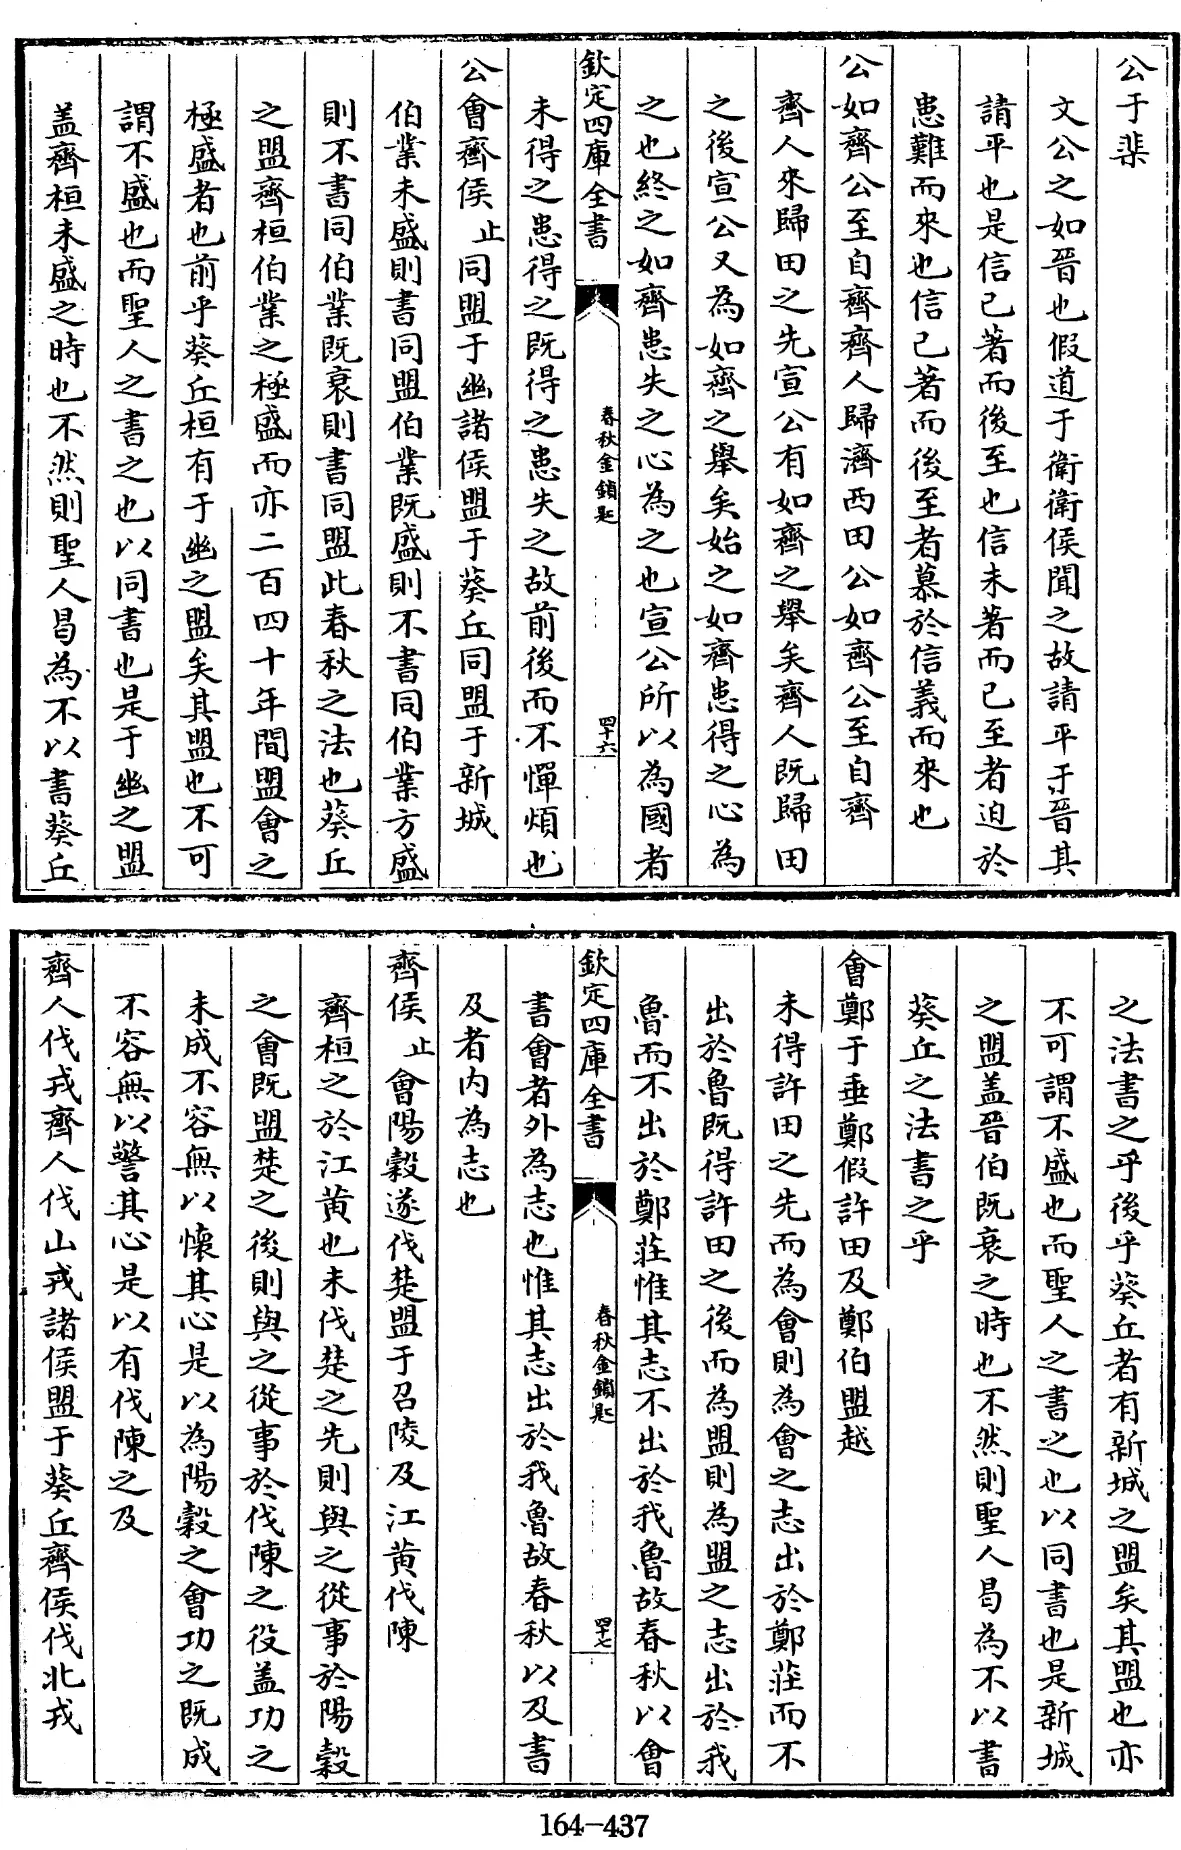 公于棐
文公之如晉也假道于衛衛侯聞之故請平于晉其
請平也是信已著而後至也信未著而已至者迫於
患難而來也信已著而後至者慕於信義而來也
公如齊公至自齊齊人歸濟西田公如齊公至自齊
齊人來歸田之先宣公有如齊之舉矣齊人既歸田
之後宣公又為如齊之舉矣始之如齊患得之心為
之也終之如齊患失之心為之也宣公所以為國者
欽定四庫全書
春秋金鎖匙
四十六
未得之患得之既得之患失之故前後而不憚煩也
公會齊侯止同盟于幽諸侯盟于葵丘同盟于新城
伯業未盛則書同盟伯業既盛則不書同伯業方盛
則不書同伯業既衰則書同盟此春秋之法也葵丘
之盟齊桓伯業之極盛而亦二百四十年間盟會之
極盛者也前乎葵丘桓有于幽之盟矣其盟也不可
謂不盛也而聖人之書之也以同書也是于幽之盟
盖齊桓未盛之時也不然則聖人曷為不以書葵丘
之法書之乎後乎葵丘者有新城之盟矣其盟也亦
不可謂不盛也而聖人之書之也以同書也是新城
之盟盖晉伯既衰之時也不然則聖人曷為不以書
葵丘之法書之乎
會鄭于垂鄭假許田及鄭伯盟越
未得許田之先而為會則為會之志出於鄭莊而不
出於魯既得許田之後而為盟則為盟之志出於我
魯而不出於鄭莊惟其志不出於我魯故春秋以會
欽定四庫全書
春秋金鎖匙
四十七
書會者外為志也惟其志出於我魯故春秋以及書
及者内為志也
齊侯止會陽穀遂伐楚盟于召陵及江黄伐陳
齊桓之於江黄也未伐楚之先則與之從事於陽穀
之會既盟楚之後則與之從事於伐陳之役盖功之
未成不容無以懷其心是以為陽穀之會功之既成
不容無以警其心是以有伐陳之及
齊人伐戎齊人伐山戎諸侯盟于葵丘齊侯伐北戎
164-437